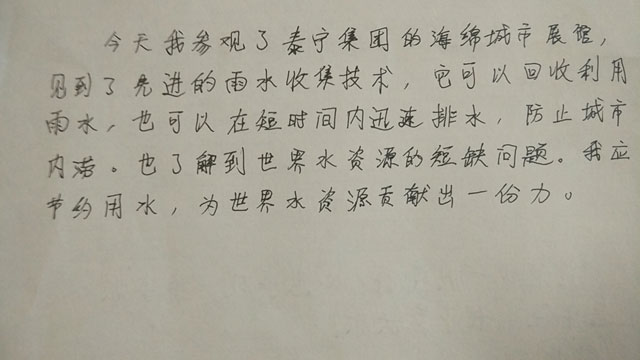 今天我参观了泰宁集团的海绵城市展馆，
见到了先进的雨水收集技术，它可以回收利用
雨水，也可以在短时间内迅速排水，防止城市
内涝。也了解到世界水资源的短缺问题。我应
节约用水，为世界水资源贡献出一份力。